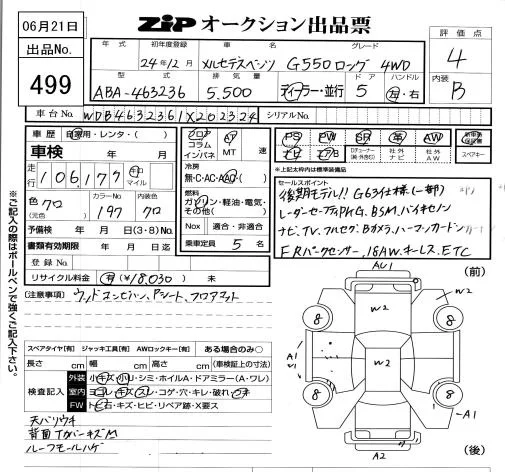 06月21日
出品No.
499
ZIP オークション出品票
評価点
4
内装
B
年式 初年度登録 車名 グレード
24年12月 メルセデスベンツ G550ロング 4WD
型式 排気量 ドア ハンドル
ABA-463236 5.500 ディーラー・並行 5 左・右
車台No. WDB4632361X202324 シリアルNo.
車歴 自家用・レンタ・( )
車検
走行 106,177 キロ マイル
色 クロ (元色) カラーNo. 197 内装色 クロ
予備検 年 月 日(3・8)No.
書類有効期限 年 月 日迄
登録No.
リサイクル料金 有(¥18,030) 未
フロア コラム インパネ
AT MT 速
冷房
無・C・AC・AAC・( )
燃料
ガソリン・軽油・電気・その他( )
Nox 適合・非適合
乗車定員 5 名
PS PW SR 革 AW 新車時保証書
ナビ TV B Dチューナー(純・外含む) 社外ナビ 社外AW スペアキー
*上記太枠内は装備品
セールスポイント
後期モデル!! G63仕様(一部)
レーダーセーフティPKG. BSM. バイキセノン
ナビ.TV.フルセグ.Bカメラ.ハーマンカードン
FRパークセンサー.18AW.キーレス.ETC
[注意事項] ウッドコンビハン、Pシート、フロアマット
※ご記入の際はボールペンで強くご記入下さい。
スペアタイヤ[有] ジャッキ工具[有] AWロックキー[有] ある場合のみ○
長さ cm 幅 cm 高さ cm (車検証上の寸法)
検査記入
外装 小キズ・小凹・シミ・ホイルA・ドアミラー(A・ワレ)
室内 ヨゴレ・キズ・スレ・コゲ・穴・キレ・破れ・
FW トビ石・キズ・ヒビ・リペア跡・X要ス
天バリウキ
背面TカバーキズM
ルーフモールハゲ
(前)
AU1
W2
W2
8 8
A1
W2
8 8
A1
A2
(後)